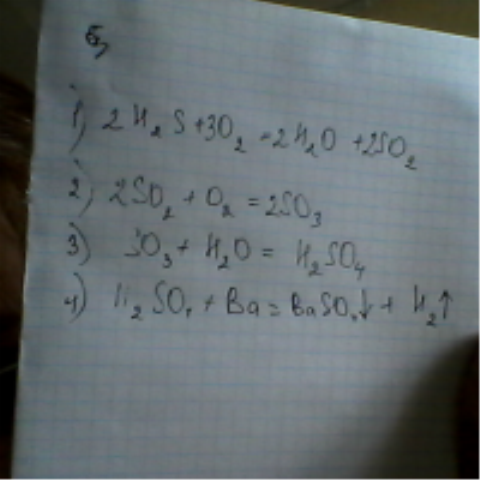 б)
1) 2H₂S+3O₂=2H₂O+2SO₂
2) 2SO₂+O₂=2SO₃
3) SO₃+H₂O=H₂SO₄
4) H₂SO₄+Ba=BaSO₄↓+H₂↑